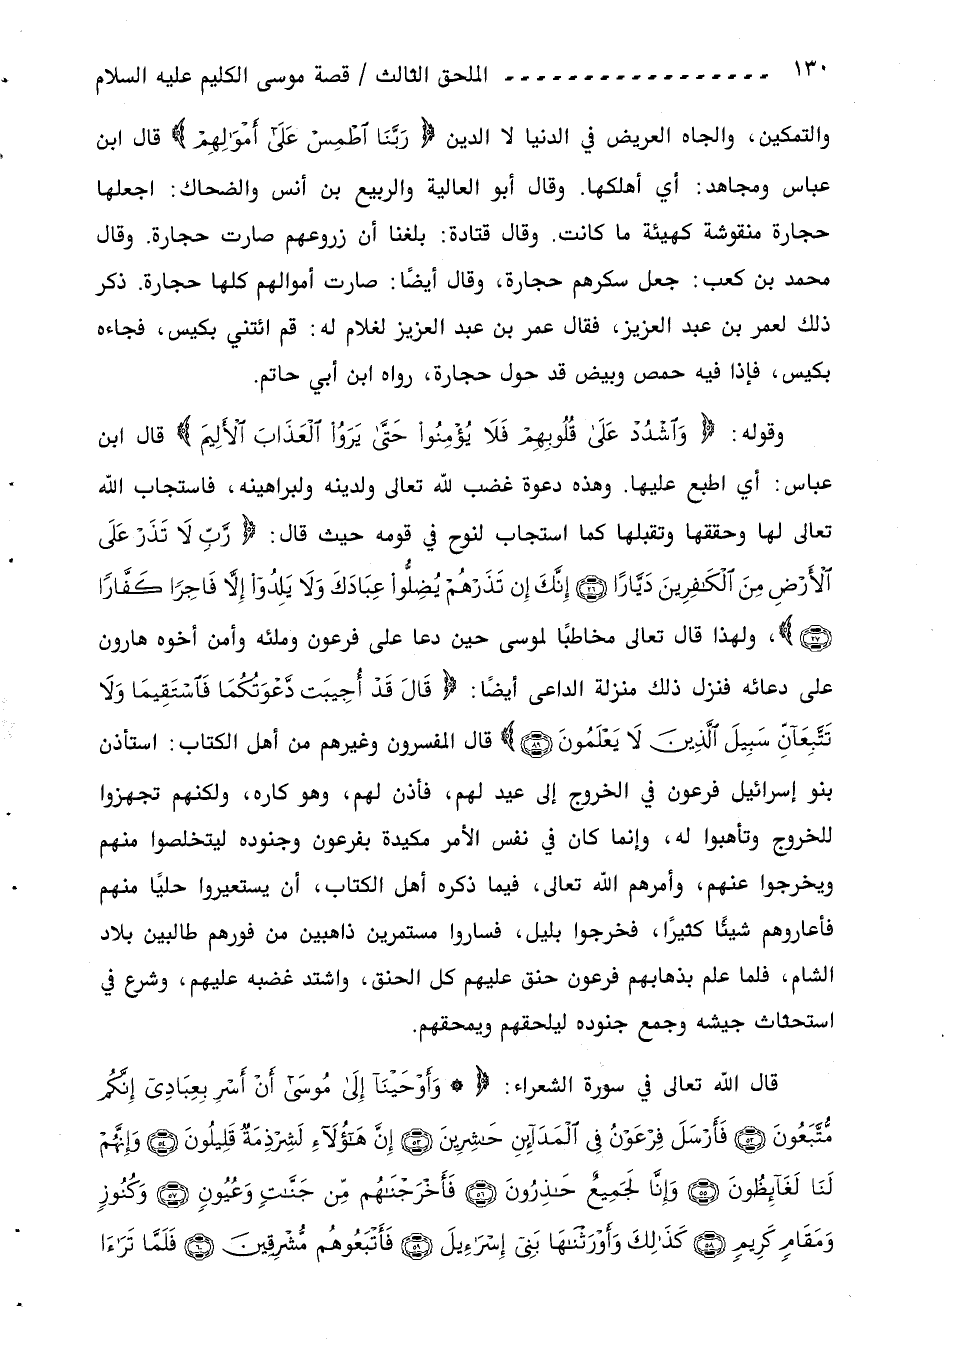 ١٣٠ ---------------- الملحق الثالث / قصة موسى الكليم عليه السلام
والتمكين، والجاه العريض في الدنيا لا الدين ﴿ رَبَّنَا ٱطْمِسْ عَلَىٰٓ أَمْوَٰلِهِمْ ﴾ قال ابن
عباس ومجاهد: أي أهلكها. وقال أبو العالية والربيع بن أنس والضحاك: اجعلها
حجارة منقوشة كهيئة ما كانت. وقال قتادة: بلغنا أن زروعهم صارت حجارة. وقال
محمد بن كعب: جعل سكرهم حجارة، وقال أيضًا: صارت أموالهم كلها حجارة. ذكر
ذلك لعمر بن عبد العزيز، فقال عمر بن عبد العزيز لغلام له: قم ائتني بكيس، فجاءه
بكيس، فإذا فيه حمص وبيض قد حول حجارة، رواه ابن أبي حاتم.
وقوله: ﴿ وَٱشْدُدْ عَلَىٰ قُلُوبِهِمْ فَلَا يُؤْمِنُوا۟ حَتَّىٰ يَرَوُا۟ ٱلْعَذَابَ ٱلْأَلِيمَ ﴾ قال ابن
عباس: أي اطبع عليها. وهذه دعوة غضب لله تعالى ولدينه ولبراهينه، فاستجاب الله
تعالى لها وحققها وتقبلها كما استجاب لنوح في قومه حيث قال: ﴿ رَّبِّ لَا تَذَرْ عَلَى
ٱلْأَرْضِ مِنَ ٱلْكَٰفِرِينَ دَيَّارًا ۝٢٦ إِنَّكَ إِن تَذَرْهُمْ يُضِلُّوا۟ عِبَادَكَ وَلَا يَلِدُوٓا۟ إِلَّا فَاجِرًا كَفَّارًا
۝٢٧ ﴾، ولهذا قال تعالى مخاطبًا لموسى حين دعا على فرعون وملئه وأمن أخوه هارون
على دعائه فنزل ذلك منزلة الداعى أيضًا: ﴿ قَالَ قَدْ أُجِيبَت دَّعْوَتُكُمَا فَٱسْتَقِيمَا وَلَا
تَتَّبِعَآنِّ سَبِيلَ ٱلَّذِينَ لَا يَعْلَمُونَ ۝٨٩ ﴾ قال المفسرون وغيرهم من أهل الكتاب: استأذن
بنو إسرائيل فرعون في الخروج إلى عيد لهم، فأذن لهم، وهو كاره، ولكنهم تجهزوا
للخروج وتأهبوا له، وإنما كان في نفس الأمر مكيدة بفرعون وجنوده ليتخلصوا منهم
ويخرجوا عنهم، وأمرهم الله تعالى، فيما ذكره أهل الكتاب، أن يستعيروا حليًا منهم
فأعاروهم شيئًا كثيرًا، فخرجوا بليل، فساروا مستمرين ذاهبين من فورهم طالبين بلاد
الشام، فلما علم بذهابهم فرعون حنق عليهم كل الحنق، واشتد غضبه عليهم، وشرع في
استحثاث جيشه وجمع جنوده ليلحقهم ويمحقهم.
قال الله تعالى في سورة الشعراء: ﴿ * وَأَوْحَيْنَآ إِلَىٰ مُوسَىٰٓ أَنْ أَسْرِ بِعِبَادِىٓ إِنَّكُم
مُّتَّبَعُونَ ۝٥٢ فَأَرْسَلَ فِرْعَوْنُ فِى ٱلْمَدَآئِنِ حَٰشِرِينَ ۝٥٣ إِنَّ هَٰٓؤُلَآءِ لَشِرْذِمَةٌ قَلِيلُونَ ۝٥٤ وَإِنَّهُمْ
لَنَا لَغَآئِظُونَ ۝٥٥ وَإِنَّا لَجَمِيعٌ حَٰذِرُونَ ۝٥٦ فَأَخْرَجْنَٰهُم مِّن جَنَّٰتٍ وَعُيُونٍ ۝٥٧ وَكُنُوزٍ
وَمَقَامٍ كَرِيمٍ ۝٥٨ كَذَٰلِكَ وَأَوْرَثْنَٰهَا بَنِىٓ إِسْرَٰٓءِيلَ ۝٥٩ فَأَتْبَعُوهُم مُّشْرِقِينَ ۝٦٠ فَلَمَّا تَرَٰٓءَا